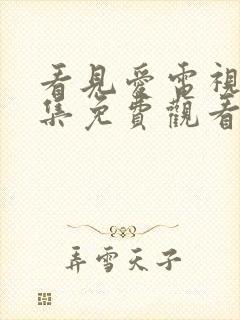 看見愛電視
集免費觀看
弄雪天子